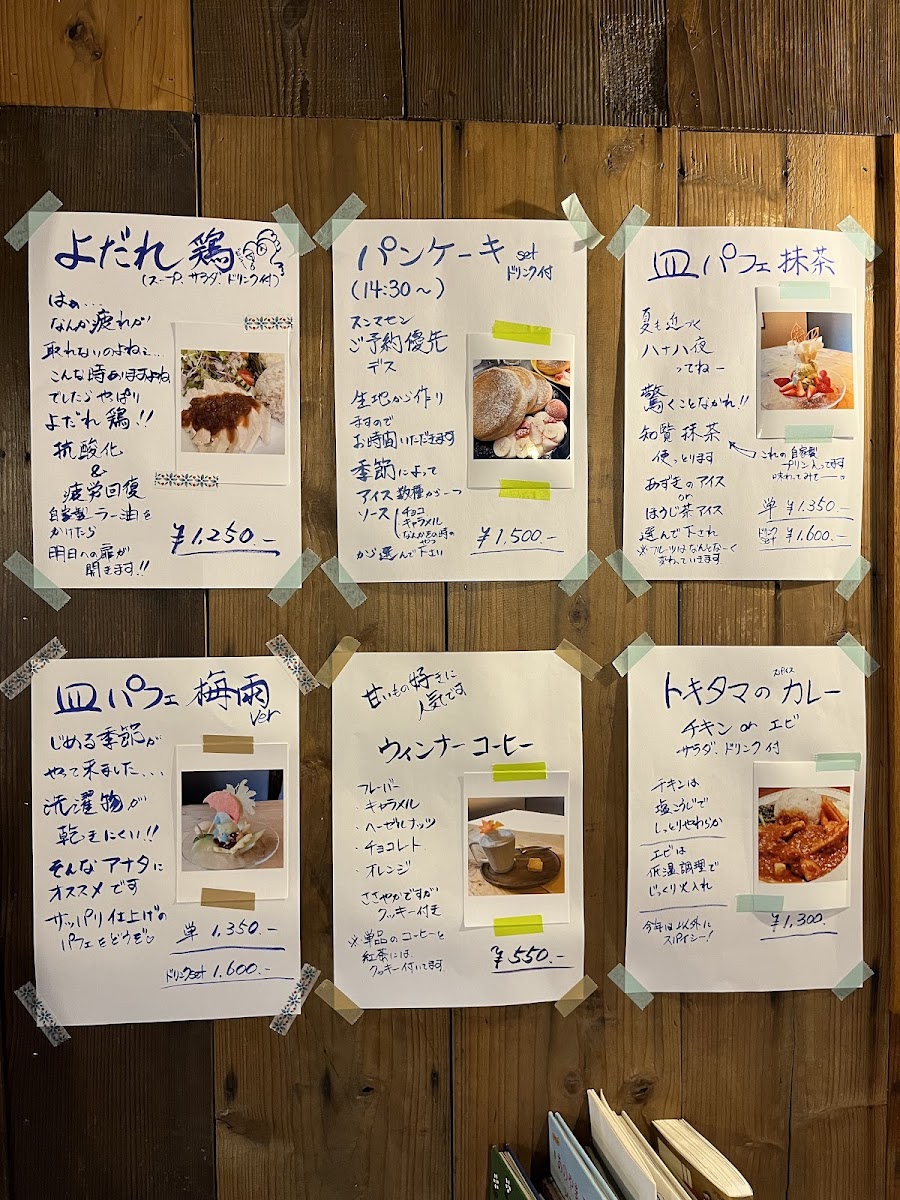 よだれ鶏
(スープ、サラダ、ドリンク付)
はぁ...
なんか疲れが
取れないのよねぇ...
こんな時ありますよね
でしたらやっぱり
よだれ鶏!!
抗酸化
&
疲労回復
自家製ラー油を
かけたら
明日への扉が
開きます!!
¥1,250.-
パンケーキ set
ドリンク付
(14:30〜)
スンマセン
ご予約優先
デス
生地から作り
ますので
お時間いただきます
季節によって
アイス数種から一つ
ソース
チョコ
キャラメル
なんかその時の
やつ
から選んで下さい
¥1,500.-
皿パフェ抹茶
夏も近づく
八十八夜
ってねー
驚くことなかれ!!
知覧抹茶
使っとります
これの自家製
プリン入ってます
味わってみてー
あずきのアイス
or
ほうじ茶アイス
選んで下され
※フルーツはなんとなーく
変わっていきます
単 ¥1,350.-
¥1,600.-
皿パフェ梅雨
ver
じめる季節が
やって来ました...
洗濯物が
乾きにくい!!
そんなアナタに
オススメです
サッパリ仕上げの
パフェをどうぞ♡
単 1,350.-
ドリンクset 1,600.-
甘いもの好きに
人気です
ウィンナーコーヒー
フレーバー
・キャラメル
・ヘーゼルナッツ
・チョコレート
・オレンジ
ささやかですが
クッキー付き
※単品のコーヒーと
紅茶には、
クッキー付いてます
¥550.-
トキタマのカレー
スパイス
チキン or エビ
サラダ、ドリンク付
チキンは
塩こうじで
しっとりやわらか
エビは
低温調理で
じっくり火入れ
今年は以外に
スパイシー!
¥1,300.-